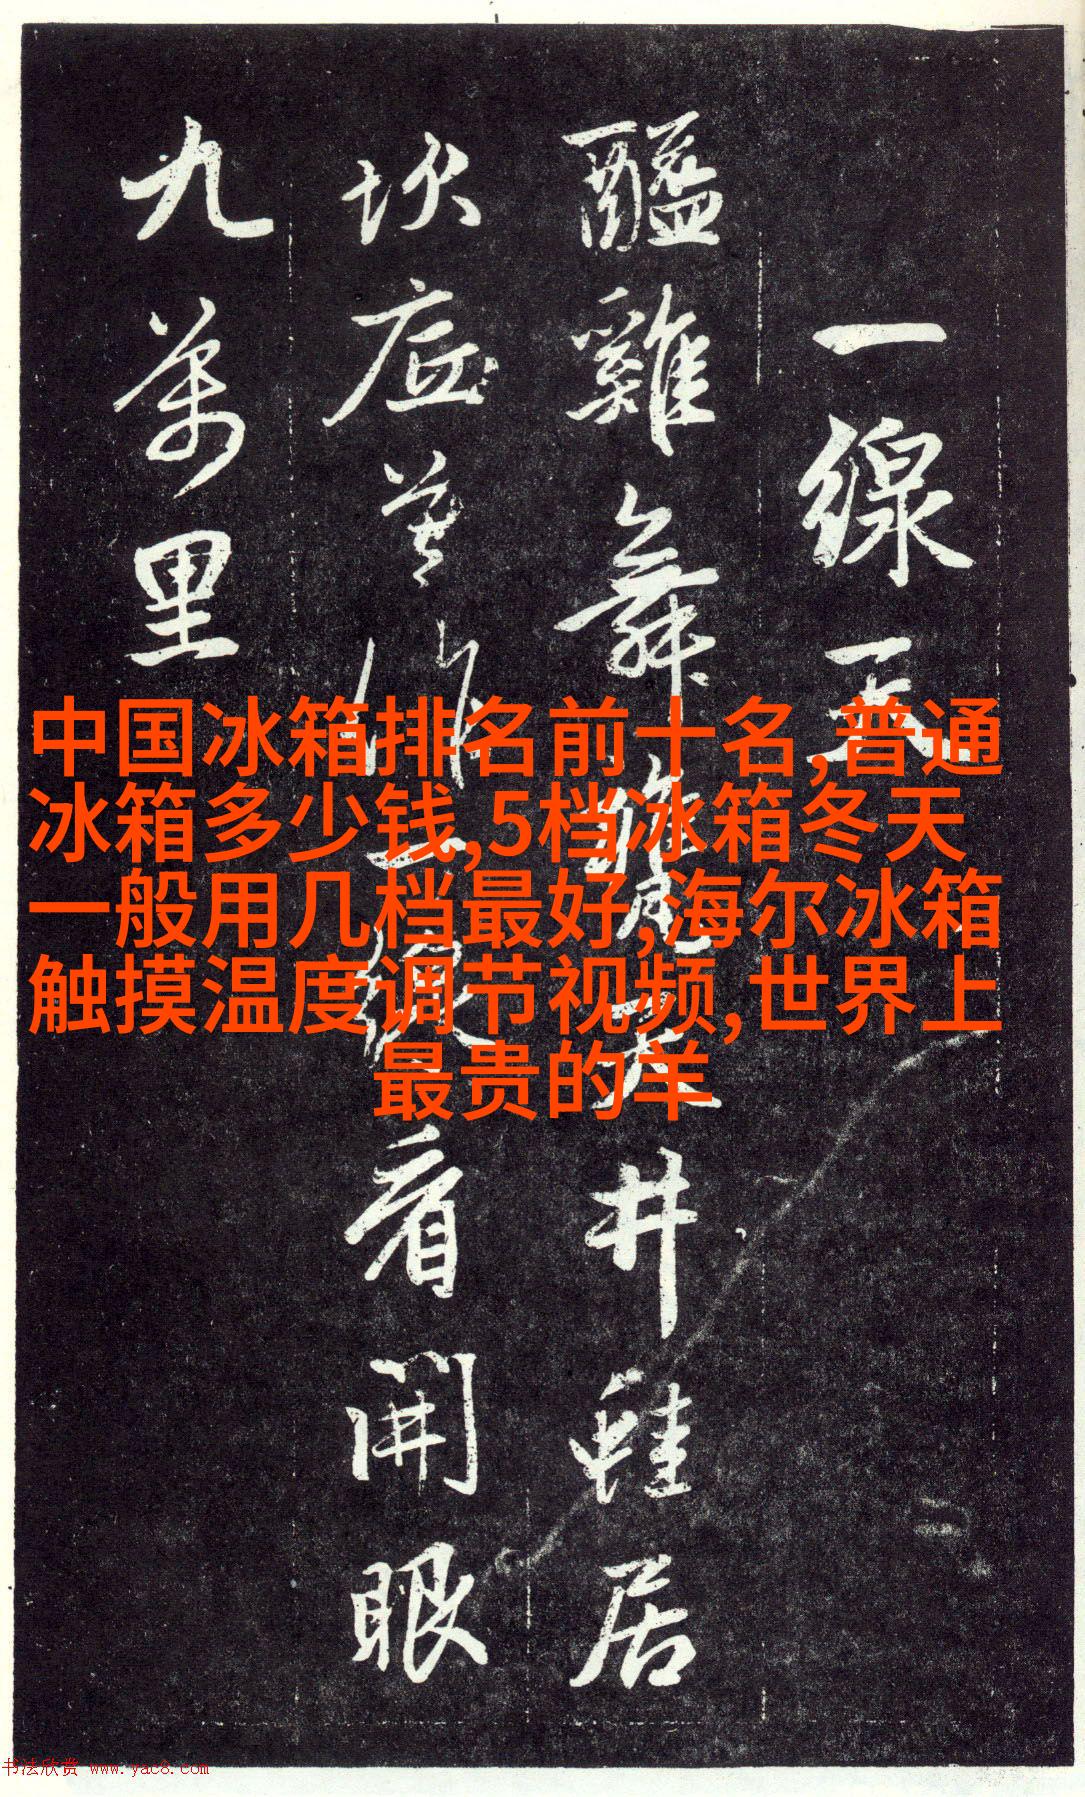 一線天
醯雞舞甕天井蛙居
坎底莫作一線看開眼
九萬里
中国冰箱排名前十名,普通
冰箱多少钱,5档冰箱冬天
一般用几档最好,海尔冰箱
触摸温度调节视频,世界上
最贵的羊
书法欣赏 www.yac8.com